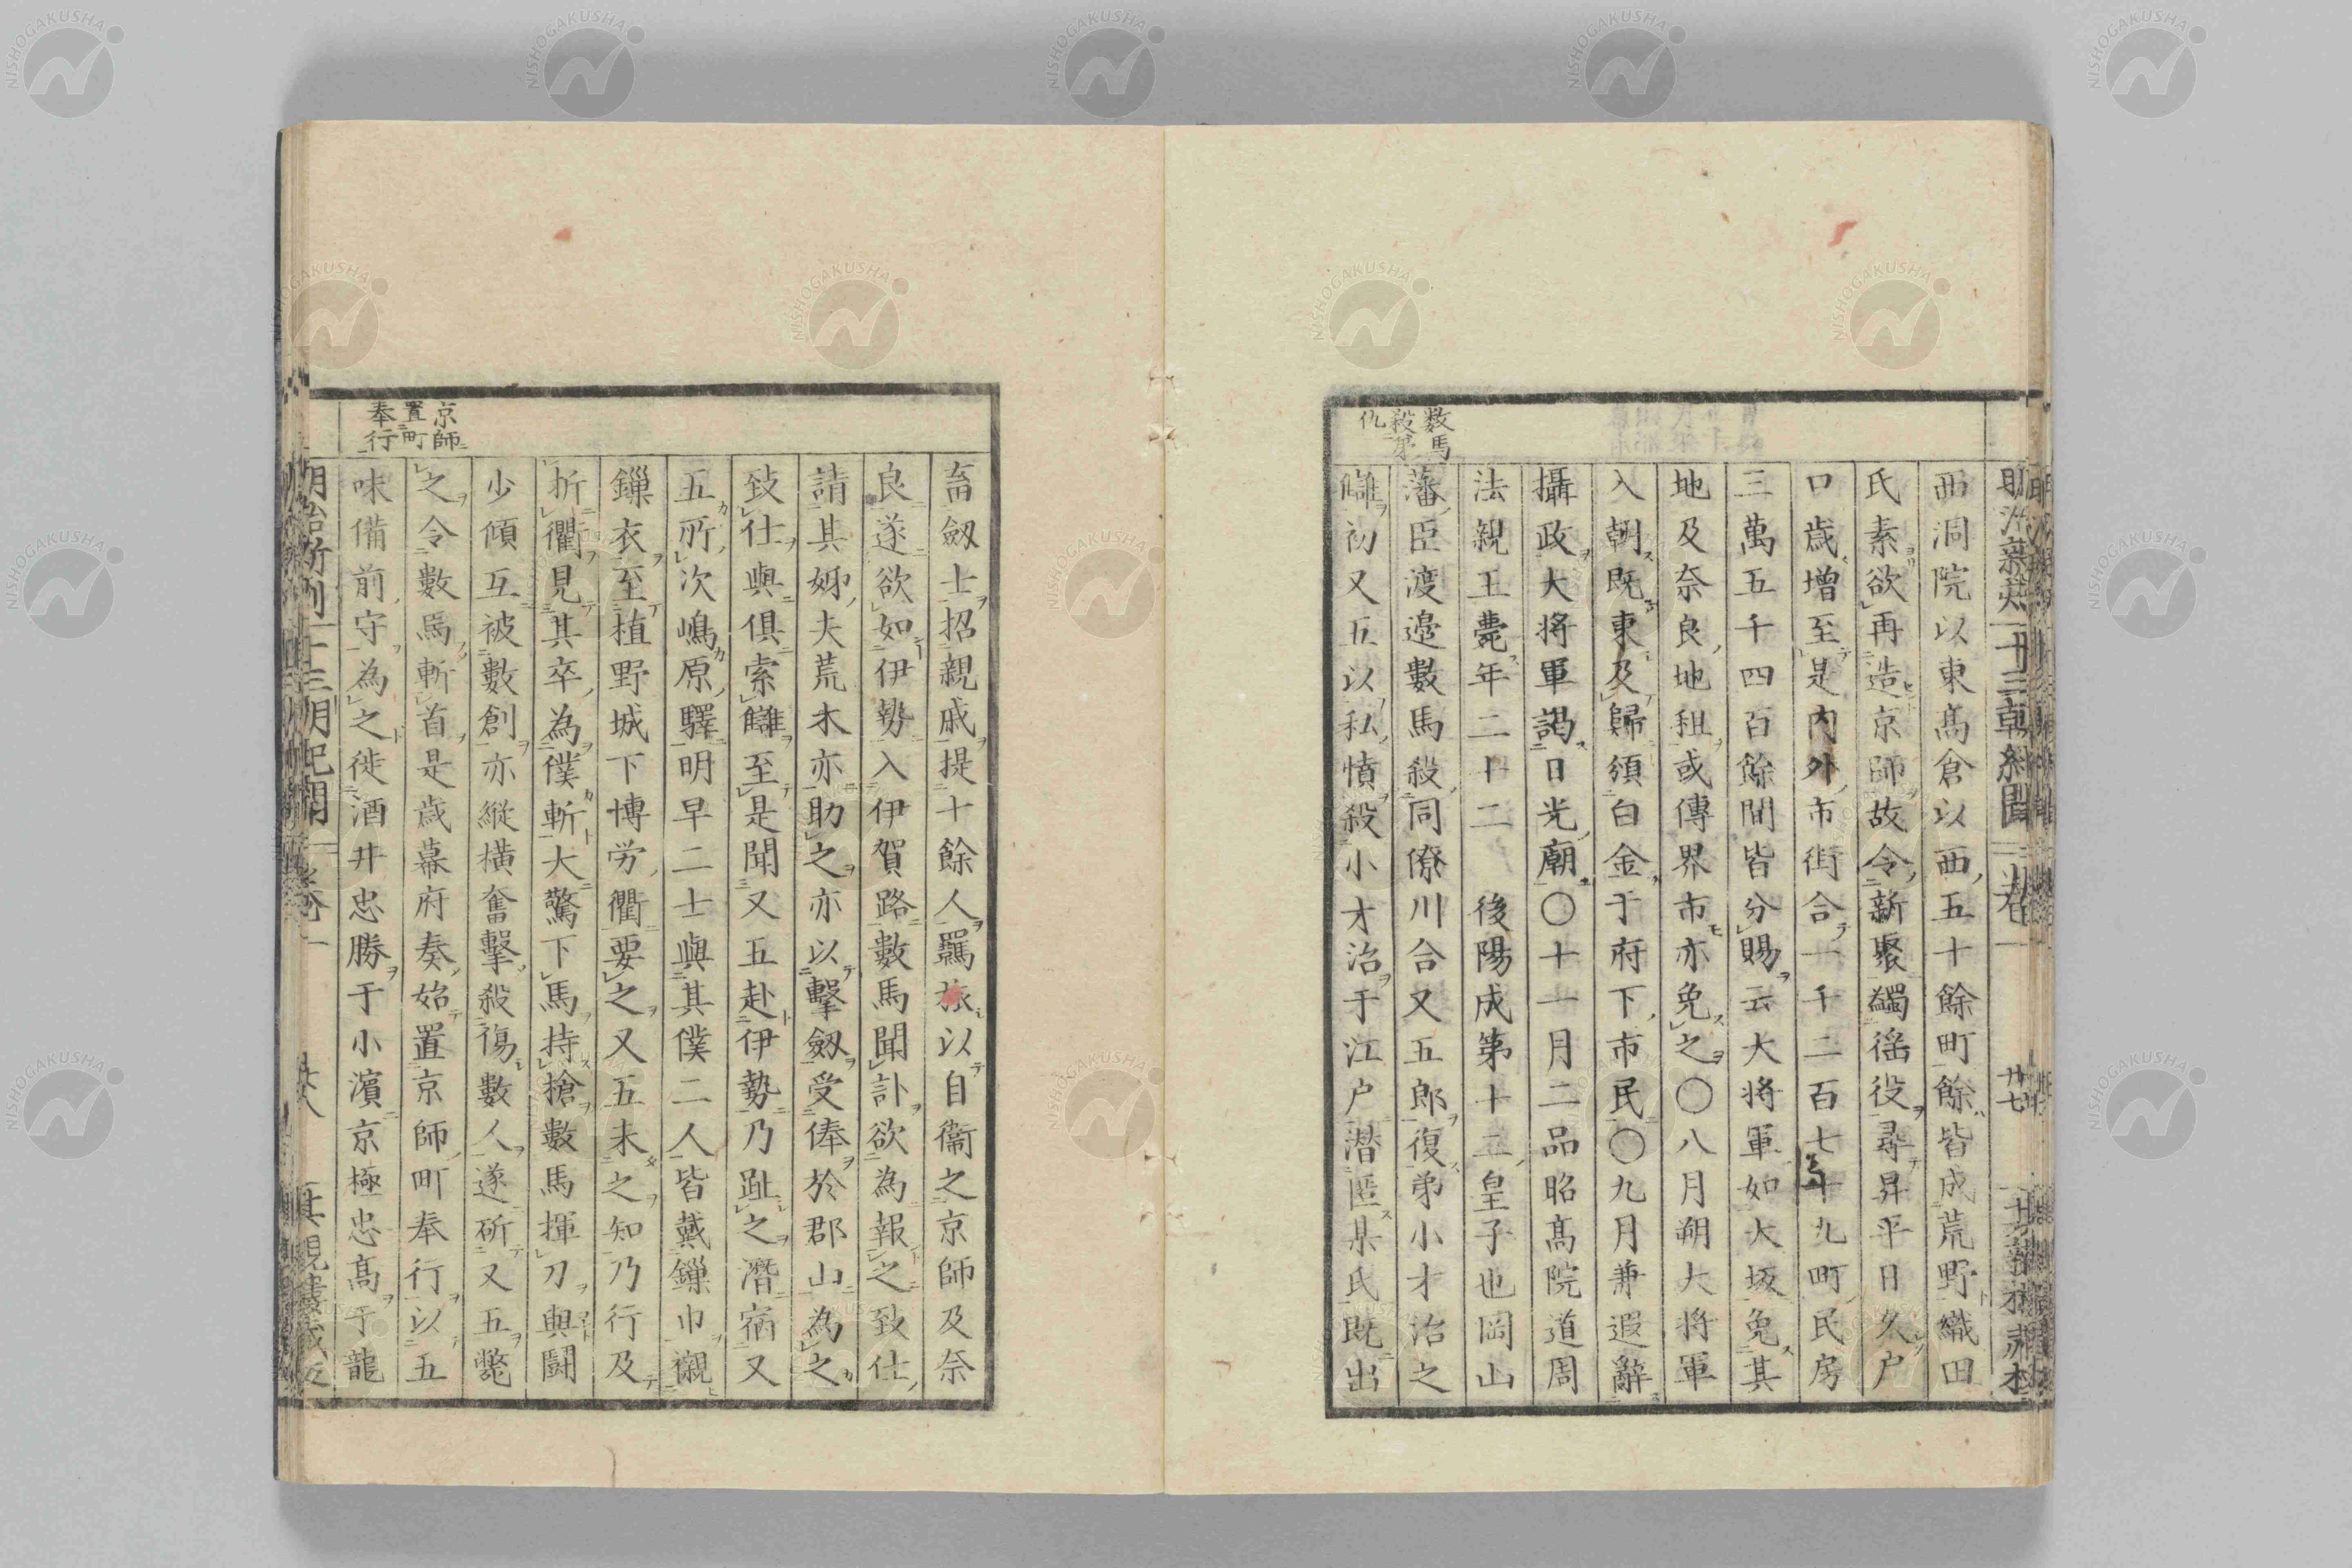 西洞院以東髙倉以西五十餘町餘皆成荒野織田
氏素欲再造京師故令新聚蠲徭役尋昇平日久户
口歳增至是内外市街合一千二百七十九町民房
三萬五千四百餘間皆分賜云大将軍如大坂免其
地及奈良地租或傳界市亦免之〇八月朔大将軍
入朝既東及歸須白金于府下市民〇九月兼遐辭
攝政大将軍謁日光廟〇十一月二品昭髙院道周
法親王薨年二十二後陽成第十二皇子也岡山
藩臣渡邉數馬殺同僚川合又五郎復弟小才治之
讎初又五以私憤殺小才治于江户潜匿某氏既出
數馬
殺弟
仇
畜劔士招親戚提十餘人羈旅以自衞之京師及奈
良遂欲如伊勢入伊賀路數馬聞訃欲為報之致仕
請其姊夫荒木亦助之亦以擊劔受俸於郡山為之
致仕與俱索讎至是聞又五赴伊勢乃趾之潛宿又
五所次嶋原驛明早二士與其僕二人皆戴鏁巾襯
鏁衣至植野城下博労衢要之又五未之知乃行及
折衢見其卒為僕斬大驚下馬持搶數馬揮刀與鬪
少傾互被數創亦縱橫奮擊殺傷數人遂斫又五斃
之令數馬斬首是歳幕府奏始置京師町奉行以五
味備前守為之徙酒井忠勝于小濵京極忠髙于龍
京師
置町
奉行